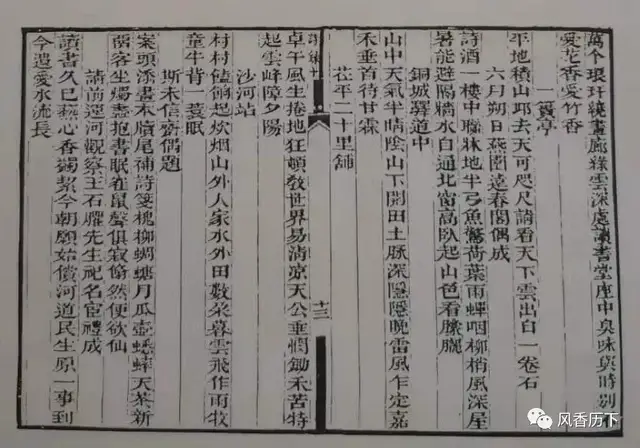 萬个琅玕繞畫廊綠雲深處讀書堂座中臭味與時別不
愛花香愛竹香
一簣亭
平地積山邱去天可咫尺請看天下雲出自一卷石
六月朔日燕園遠春閣偶成
詩酒一樓中聯牀地半弓魚驚荷葉雨蟬咽柳梢風深屋
暑能避隔牆水自通北窗高臥起山色看朦朧
銅城驛道中
山中天氣半晴陰山下開田土脉深隱隱晚雷風乍定嘉
禾垂首待甘霖
茌平二十里舖
十三
卓午風生捲地狂頓教世界易清凉天公垂憫鋤禾苦特
起雲峰障夕陽
沙河站
村村饁餉起炊烟山外人家水外田數朶暮雲飛作雨牧
童牛背一蓑眠
斯未信齋偶題
案頭添畫本牘尾補詩箋槐柳蜩螗月瓜壺蟋蟀天茶新
客坐燭盡抱書眠雀鼠聲俱寂翛然便欲仙
請前運河觀察王石臞先生祀名宦禮成
讀書久已爇心香蠲絜今朝願始償河道民生原一事到
今遺愛水流長
风香历下